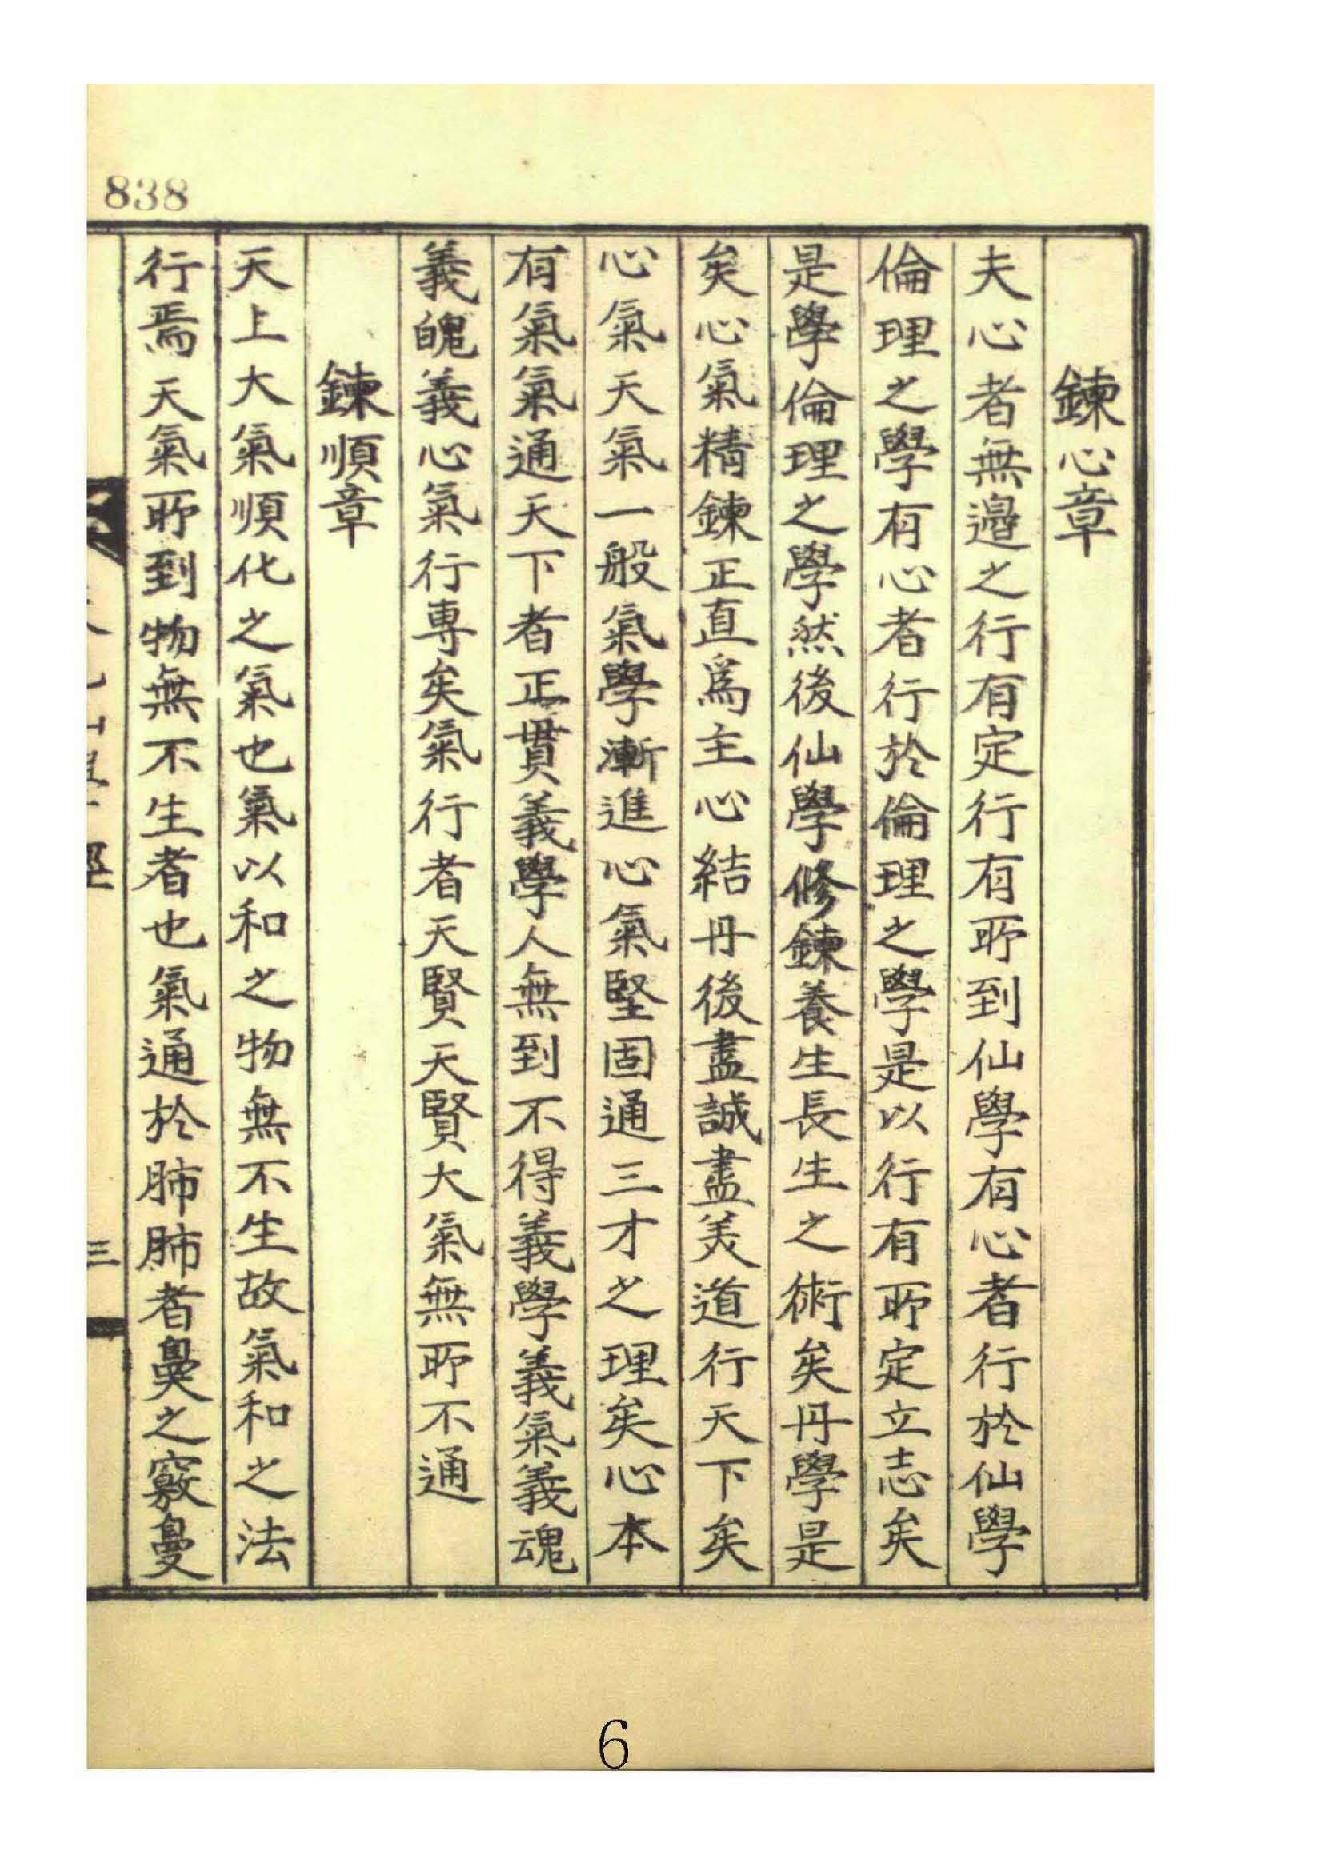 838
鍊心章
夫心者無邉之行有定行有所到仙學有心者行於仙學
倫理之學有心者行於倫理之學是以行有所定立志矣
是學倫理之學然後仙學修鍊養生長生之術矣丹學是
矣心氣精鍊正直爲主心結丹後盡誠盡美道行天下矣
心氣天氣一般氣學漸進心氣堅固通三才之理矣心本
有氣氣通天下者正貫義學人無到不得義學義氣義魂
義魄義心氣行專矣氣行者天賢天賢大氣無所不通
鍊順章
天上大氣順化之氣也氣以和之物無不生故氣和之法
行焉天氣所到物無不生者也氣通於肺肺者臭之竅曼
三
6